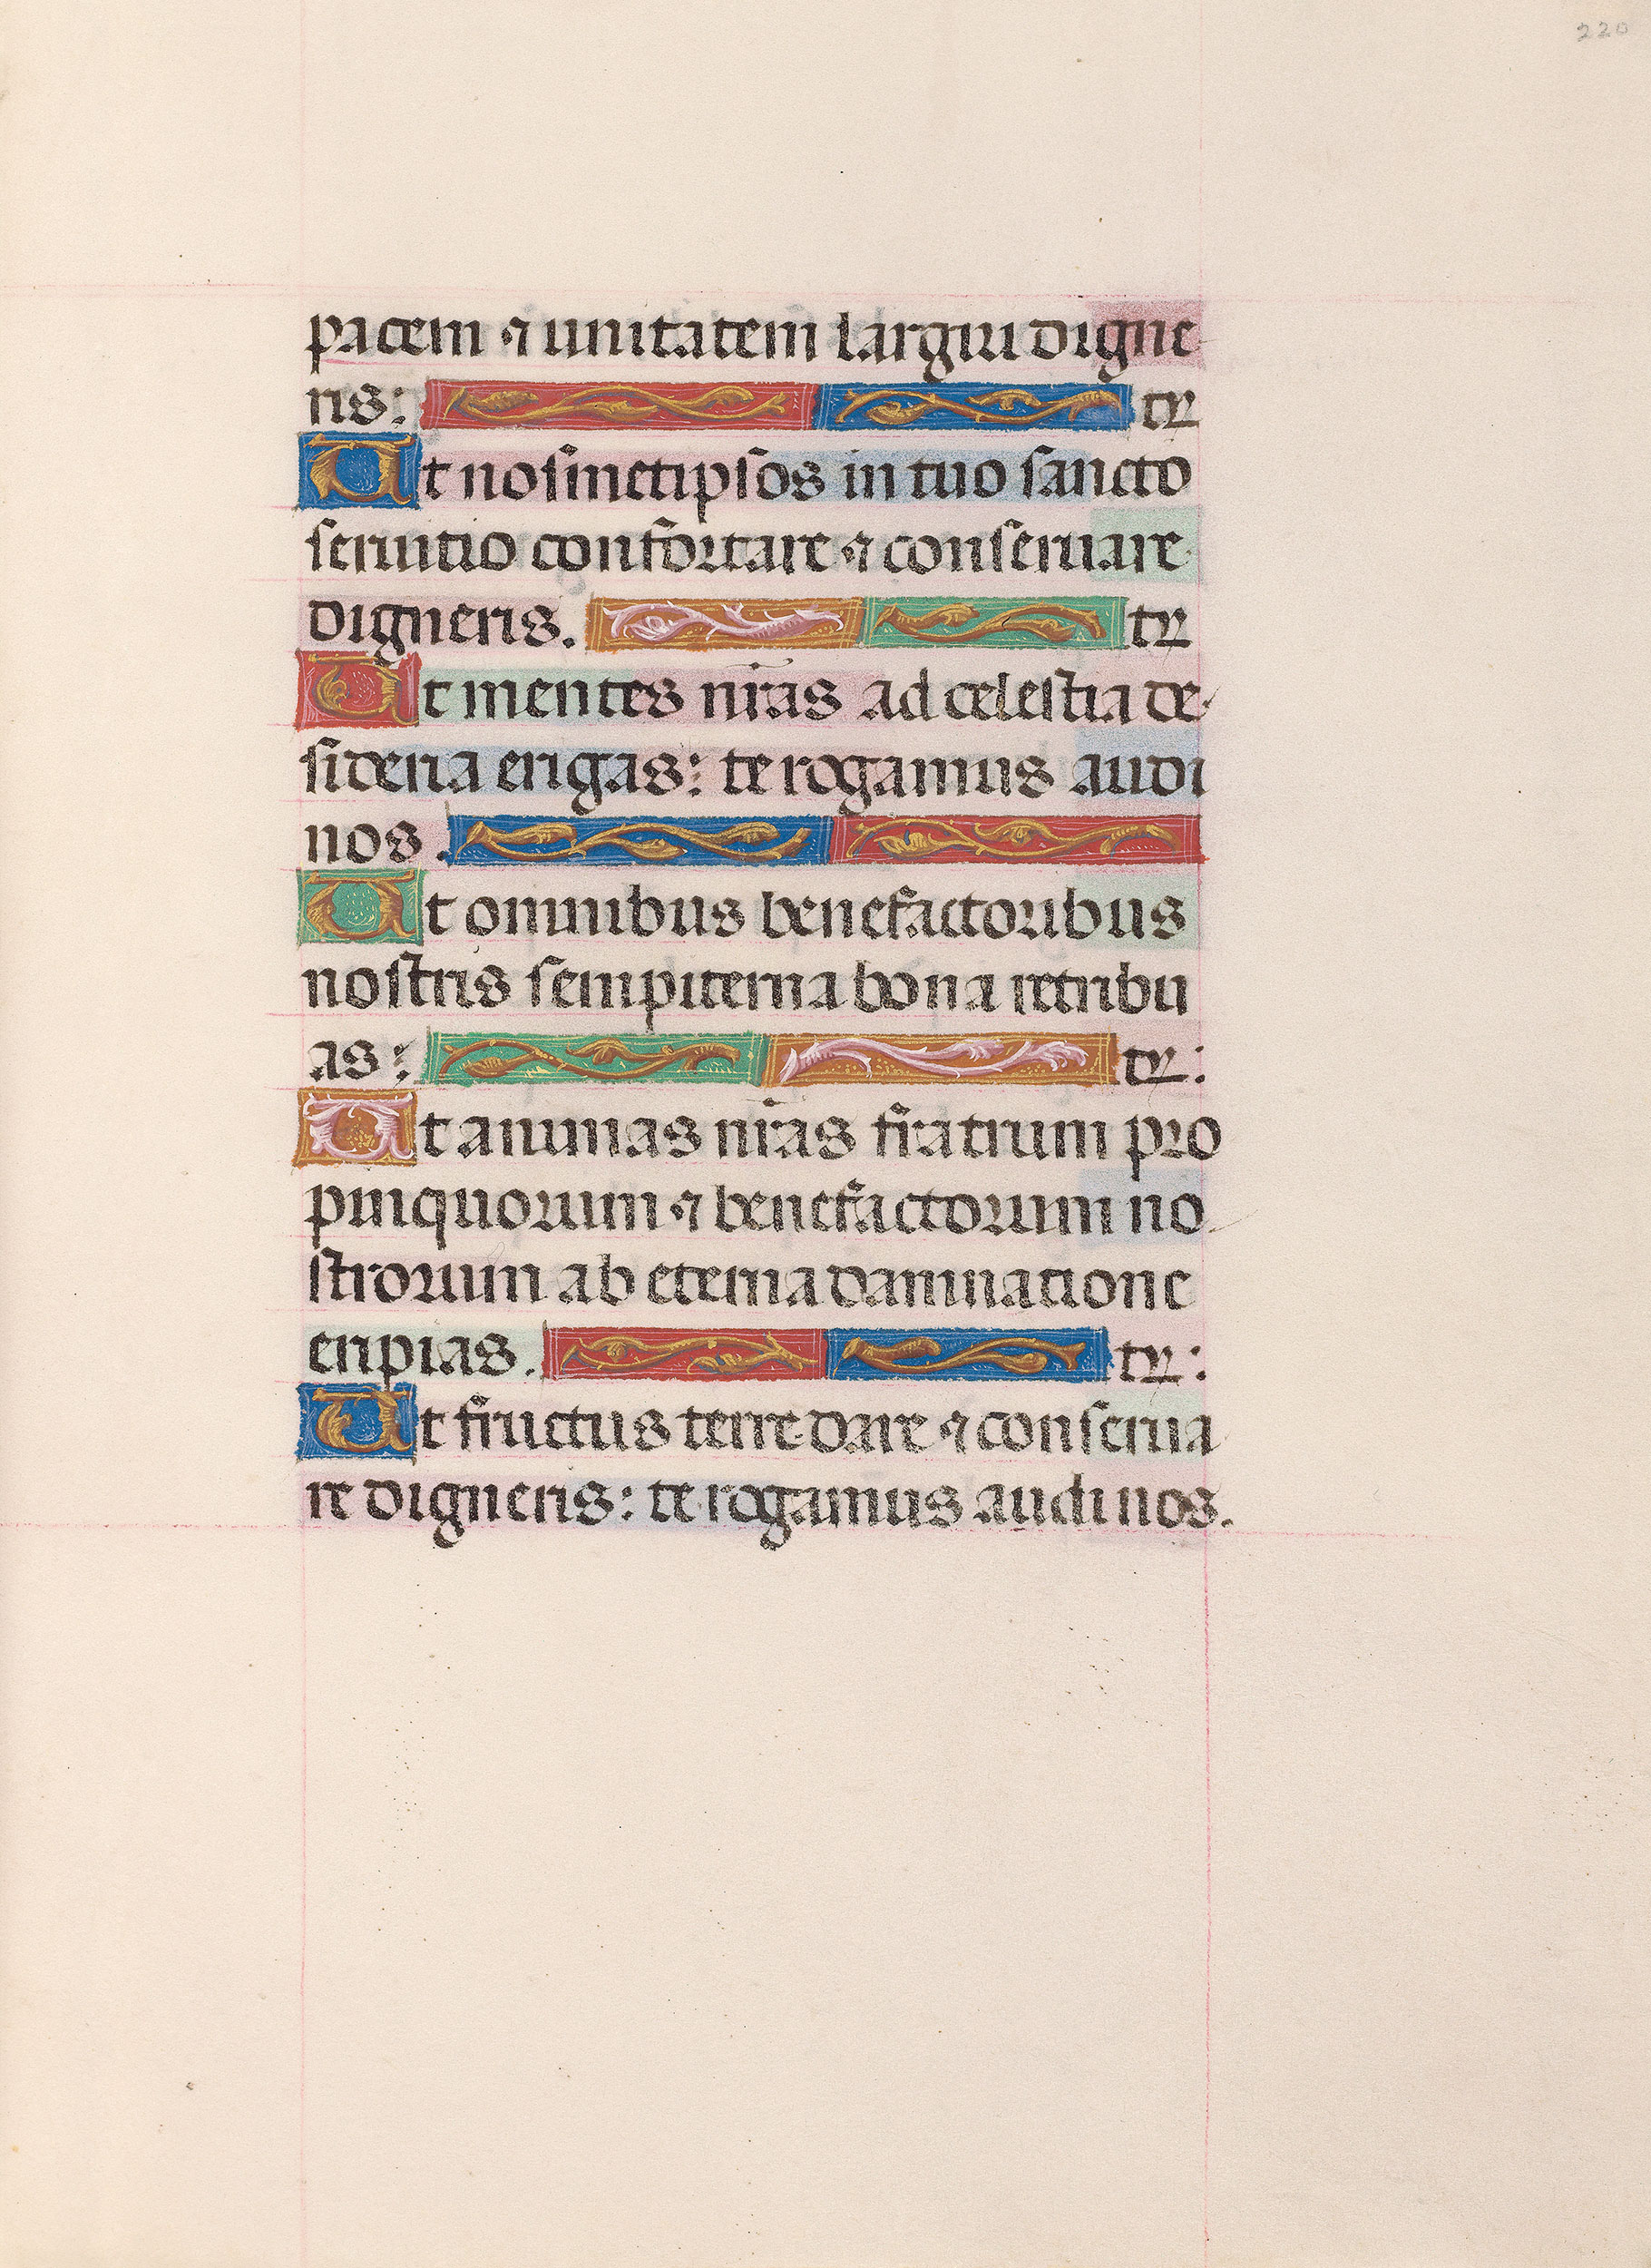 220
pacem ⁊ unitatem largiri digne
ris: tꝛ
Ut nosmetipsos in tuo sancto
seruitio confortare ⁊ conseruare
digneris. tꝛ
Ut mentes nr̄as ad celestia de
sideria erigas: te rogamus audi
nos.
Ut omnibus benefactoribus
nostris sempiterna bona retribu
as: tꝛ:
Ut animas nr̄as fratrum pro
pinquorum ⁊ benefactorum no
strorum ab eterna damnatione
eripias. tꝛ:
Ut fructus terre dare ⁊ conserua
re digneris: te rogamus audi nos.